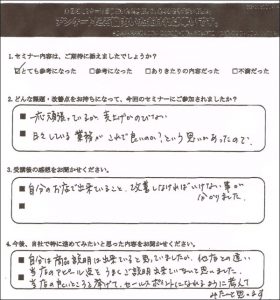 アンケートにお答えいただければ幸いです。
1.セミナー内容は、ご期待に添えましたでしょうか？
☑とても参考になった □参考になった □ありきたりの内容だった □不満だった
2.どんな課題・改善点をお持ちになって、今回のセミナーにご参加されましたか？
頑張っているが売上がのびない
日々している業務がこれで良いのか？という思いがあったので、
3.受講後の感想をお聞かせください。
自分のお店で出来ていること、改善しなければいけない事が
分かりました。
4.今後、自社で特に進めてみたいと思った内容をお聞かせください。
自分は商品説明は出来ていると思っていましたが、他店との違い
当店のアピール点をうまくご説明出来ていないと思いました。
当店の良いところを挙げて、セールスポイントになれるように考えて
みたいと思います